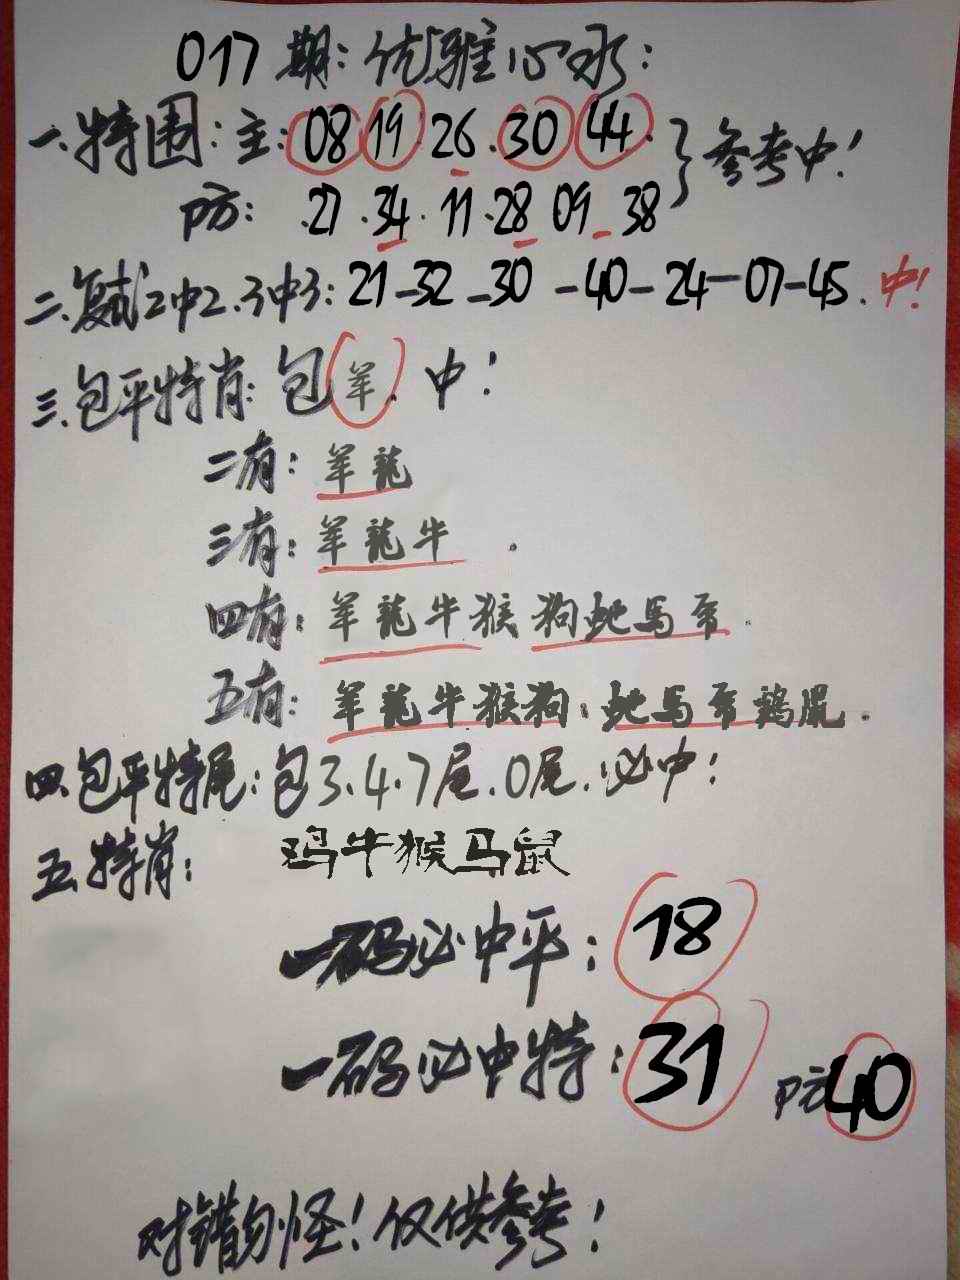 017期:优雅心水:
一.特围:主:08 19 26.30 44.
防:.27.34.11.28 09 38
}参考中!
二.复式2中2.3中3:21-32-30-40-24-07-45.中!
三.包平特肖:包羊.中!
二有:羊龍
三有:羊龍牛.
四有:羊龍牛猴狗蛇馬帝.
五有:羊龍牛猴狗:蛇馬帝鷄鼠.
四.包平特尾:包3.4.7尾.0尾.必中!
五.特肖:鸡牛猴马鼠
一码必中平:18
一码必中特:31 防40
对错勿怪!仅供参考!